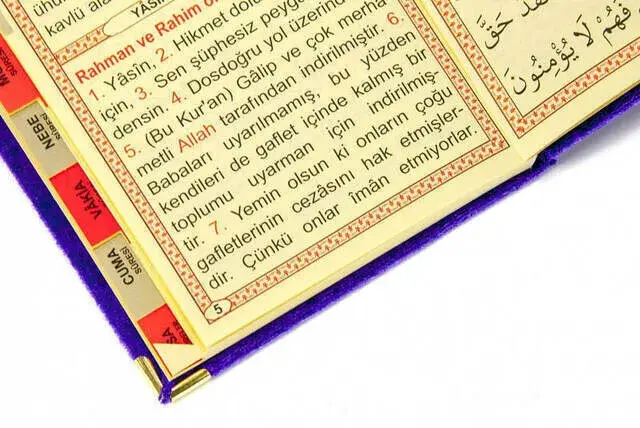 kavlü
YÂSİN
Rahman ve Rahim
1. Yâsîn, 2. Hikmet
için, 3. Sen şüphesiz
densin. 4. Dosdoğru yol üzerinde
5. (Bu Kur'an) Gâlip ve çok merha
metli Allah tarafından indirilmiştir. 6.
Babaları uyarılmamış, bu yüzden
kendileri de gaflet içinde kalmış bir
toplumu uyarman için indirilmiş-
tir. 7. Yemin olsun ki onların çoğu
gafletlerinin cezâsını hak etmişler-
dir. Çünkü onlar îmân etmiyorlar.
5
NEBE
SÛRESİ
VÂKIA
CUMA
SÛRESİ
حَقَّ
فَهُمْ لَا يُؤْمِنُونَ